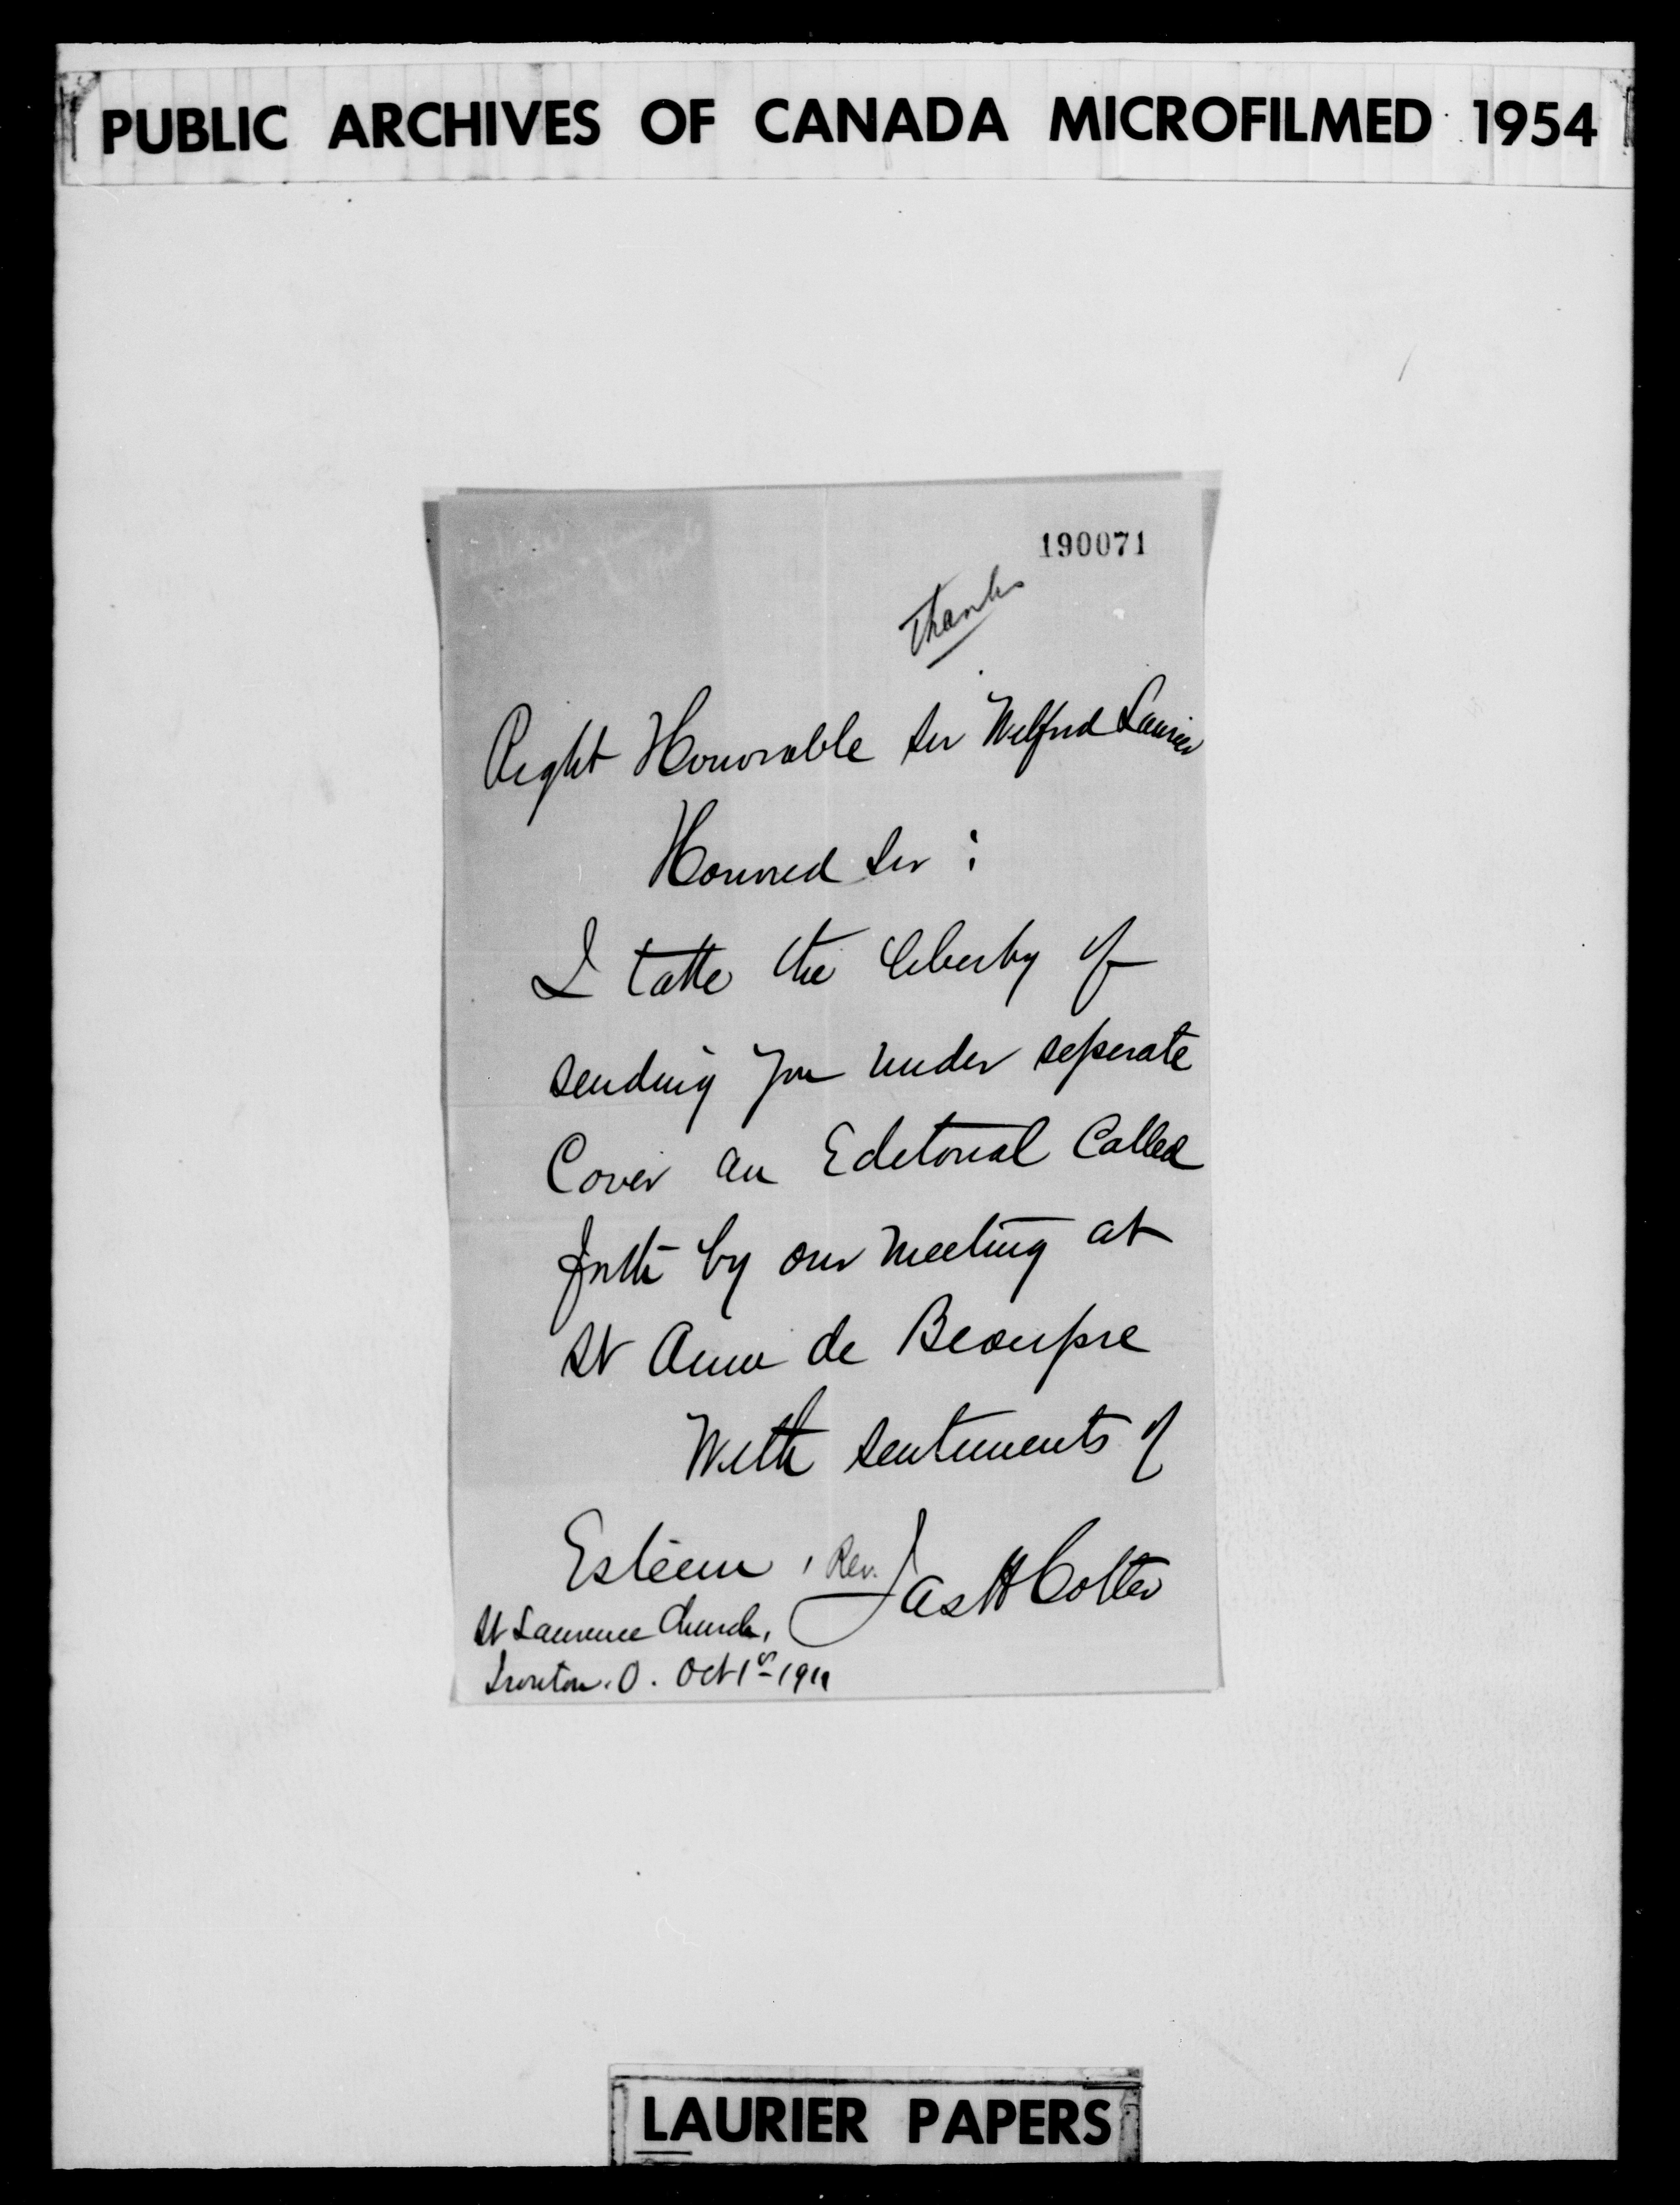 PUBLIC ARCHIVES OF CANADA MICROFILMED 1954
190071
Thanks
Right Honorable Sir Wilfrid Laurier
Honored Sir :
I take the liberty of
sending you under seperate
Cover an Editorial Called
forth by our meeting at
St Anne de Beaupre
With sentiments of
Esteem , Rev. Jas H Cotter
St Lawrence Church,
Ironton. O. Oct 1st 1911
LAURIER PAPERS